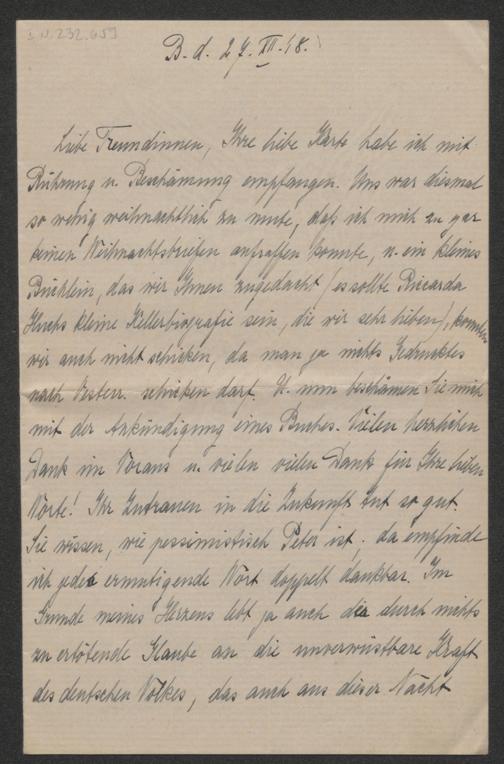 I.N. 232.659
B. d. 27. XII. 18.
Liebe Freundinnen, Ihre liebe Karte habe ich mit
Rührung u. Beschämung empfangen. Uns war diesmal
so wenig weihnachtlich zu mute, daß ich mich zu gar
keinen Weihnachtsbriefen aufraffen konnte, u. ein kleines
Büchlein, das wir Ihnen zugedacht (es sollte Ricarda
Huchs kleine Kellerbiografie sein, die wir sehr lieben), konnten
wir auch nicht schicken, da man ja nichts Gedrucktes
nach Oesterr. schicken darf. U. nun beschämen Sie mich
mit der Ankündigung eines Buches. Vielen herzlichen
Dank im Voraus u. vielen vielen Dank für Ihre lieben
Worte! Ihr Zutrauen in die Zukunft tut so gut.
Sie wissen, wie pessimistisch Peter ist, da empfinde
ich jedes ermutigende Wort doppelt dankbar. Im
Grunde meines Herzens lebt ja auch der durch nichts
zu ertötende Glaube an die unverwüstbare Kraft
des deutschen Volkes, das auch aus dieser Nacht